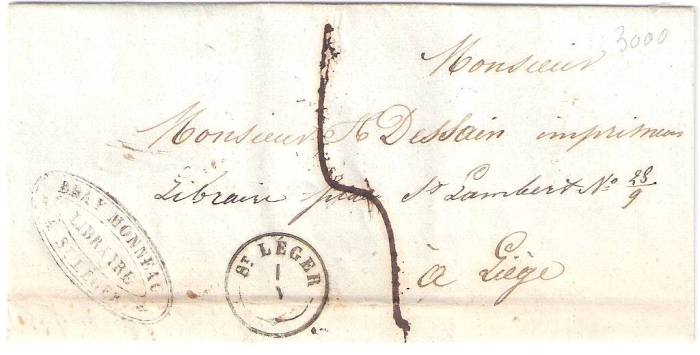 3000
Monsieur
Monsieur H Dessain imprimeur
Libraire place St Lambert No 23/9
à Liège
BRAY MONNEAU
LIBRAIRE
A ST LÉGER
ST LÉGER
1